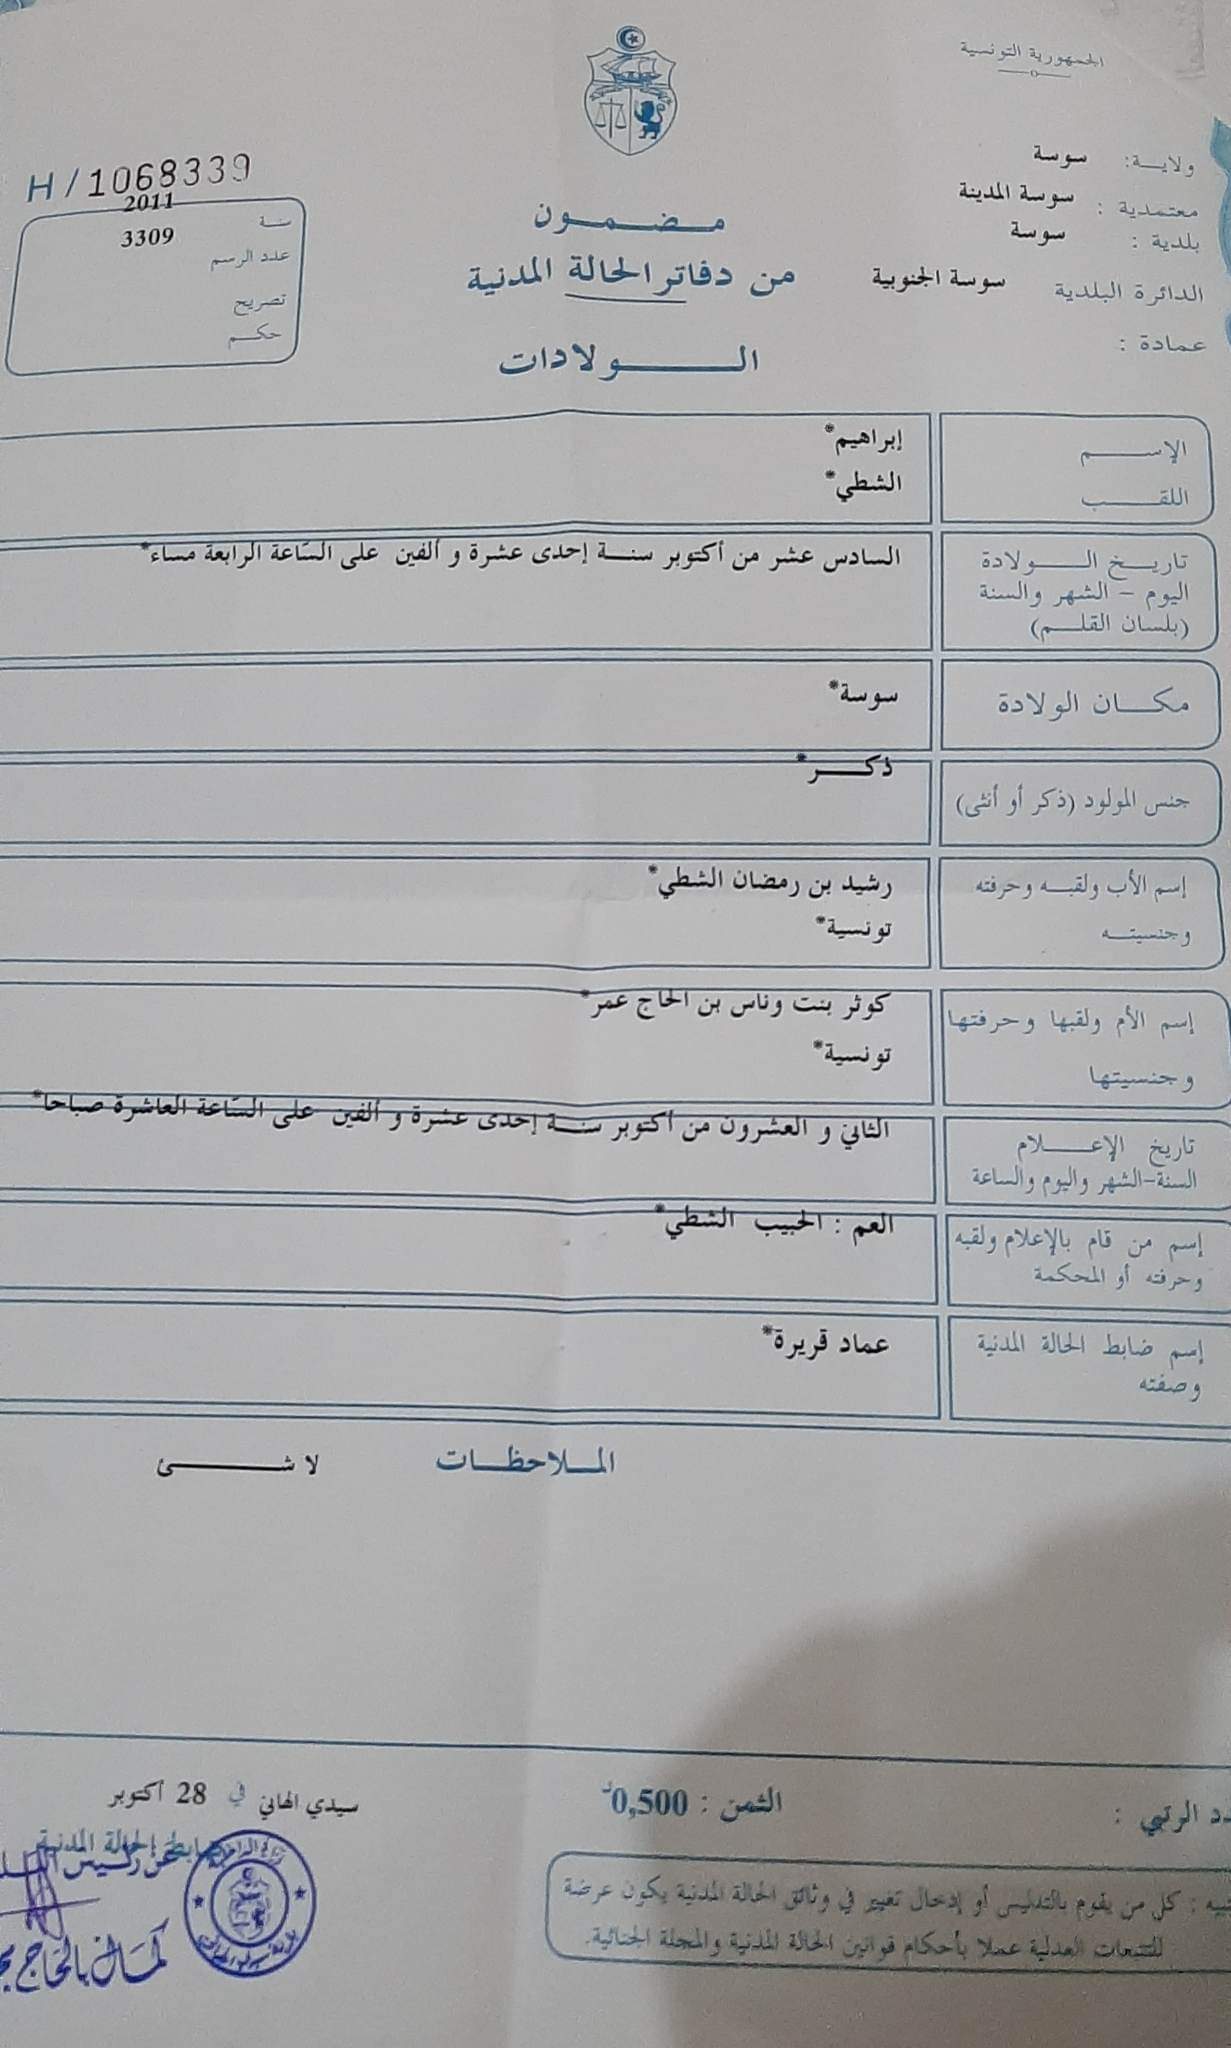 الجمهورية التونسية
ولايـــة: سوسة
معتمدية : سوسة المدينة
بلدية : سوسة
الدائرة البلدية سوسة الجنوبية
عمادة :
H/1068339
سنة 2011
عدد الرسم 3309
تصريح
حكـم
مـضـمـون
من دفاتر الحالة المدنية
الـولادات
الإسـم إبراهيم*
اللقـب الشطي*
تاريـخ الـولادة السادس عشر من أكتوبر سنـة إحدى عشرة و ألفين على السّاعة الرابعة مساء*
اليوم - الشهر والسنة
(بلسان القلـم)
مكـان الولادة سوسة*
جنس المولود (ذكر أو أنثى) ذكـر*
إسم الأب ولقبـه وحرفته رشيد بن رمضان الشطي*
وجنسيتـه تونسية*
إسم الأم ولقبها وحرفتها كوثر بنت وناس بن الحاج عمر*
وجنسيتها تونسية*
تاريخ الإعـلام الثاني و العشرون من أكتوبر سنـة إحدى عشرة و ألفين على السّاعة العاشرة صباحا*
السنة-الشهر واليوم والساعة
إسم من قام بالإعلام ولقبه العم : الحبيب الشطي*
وحرفته أو المحكمة
إسم ضابط الحالة المدنية عماد قريرة*
وصفته
المـلاحظـات لا شـئ
الرتبي : الثمن : 0,500د
سيدي الهاني في 28 أكتوبر
ضابط الحالة المدنية
عن رئيس
كمال بالحاج
كل من يقوم بالتدليس أو إدخال تغيير في وثائق الحالة المدنية يكون عرضة
للتتبعات العدلية عملا بأحكام قوانين الحالة المدنية والمجلة الجنائية.